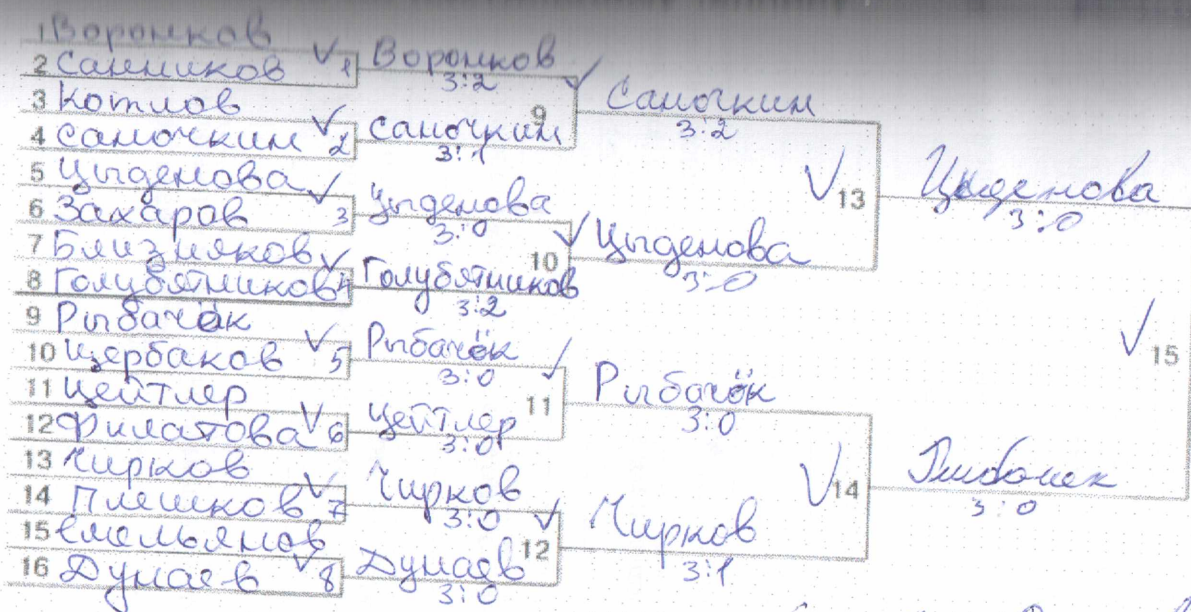 1 Воронков
2 Санников
3 Котлов
4 Самочкин
5 Цыденова
6 Захаров
7 Близняков
8 Голубятников
9 Рыбачёк
10 Щербаков
11 Цейтлер
12 Филатова
13 Чирков
14 Плешков
15 Емельянов
16 Дунаев
1 Воронков
3:2
2 Самочкин
3:1
3 Цыденова
3:0
4 Голубятников
3:2
5 Рыбачёк
3:0
6 Цейтлер
3:0
7 Чирков
3:0
8 Дунаев
3:0
9 Самочкин
3:2
10 Цыденова
3:0
11 Рыбачёк
3:0
12 Чирков
3:1
13 Цыденова
3:0
14
3:0
15